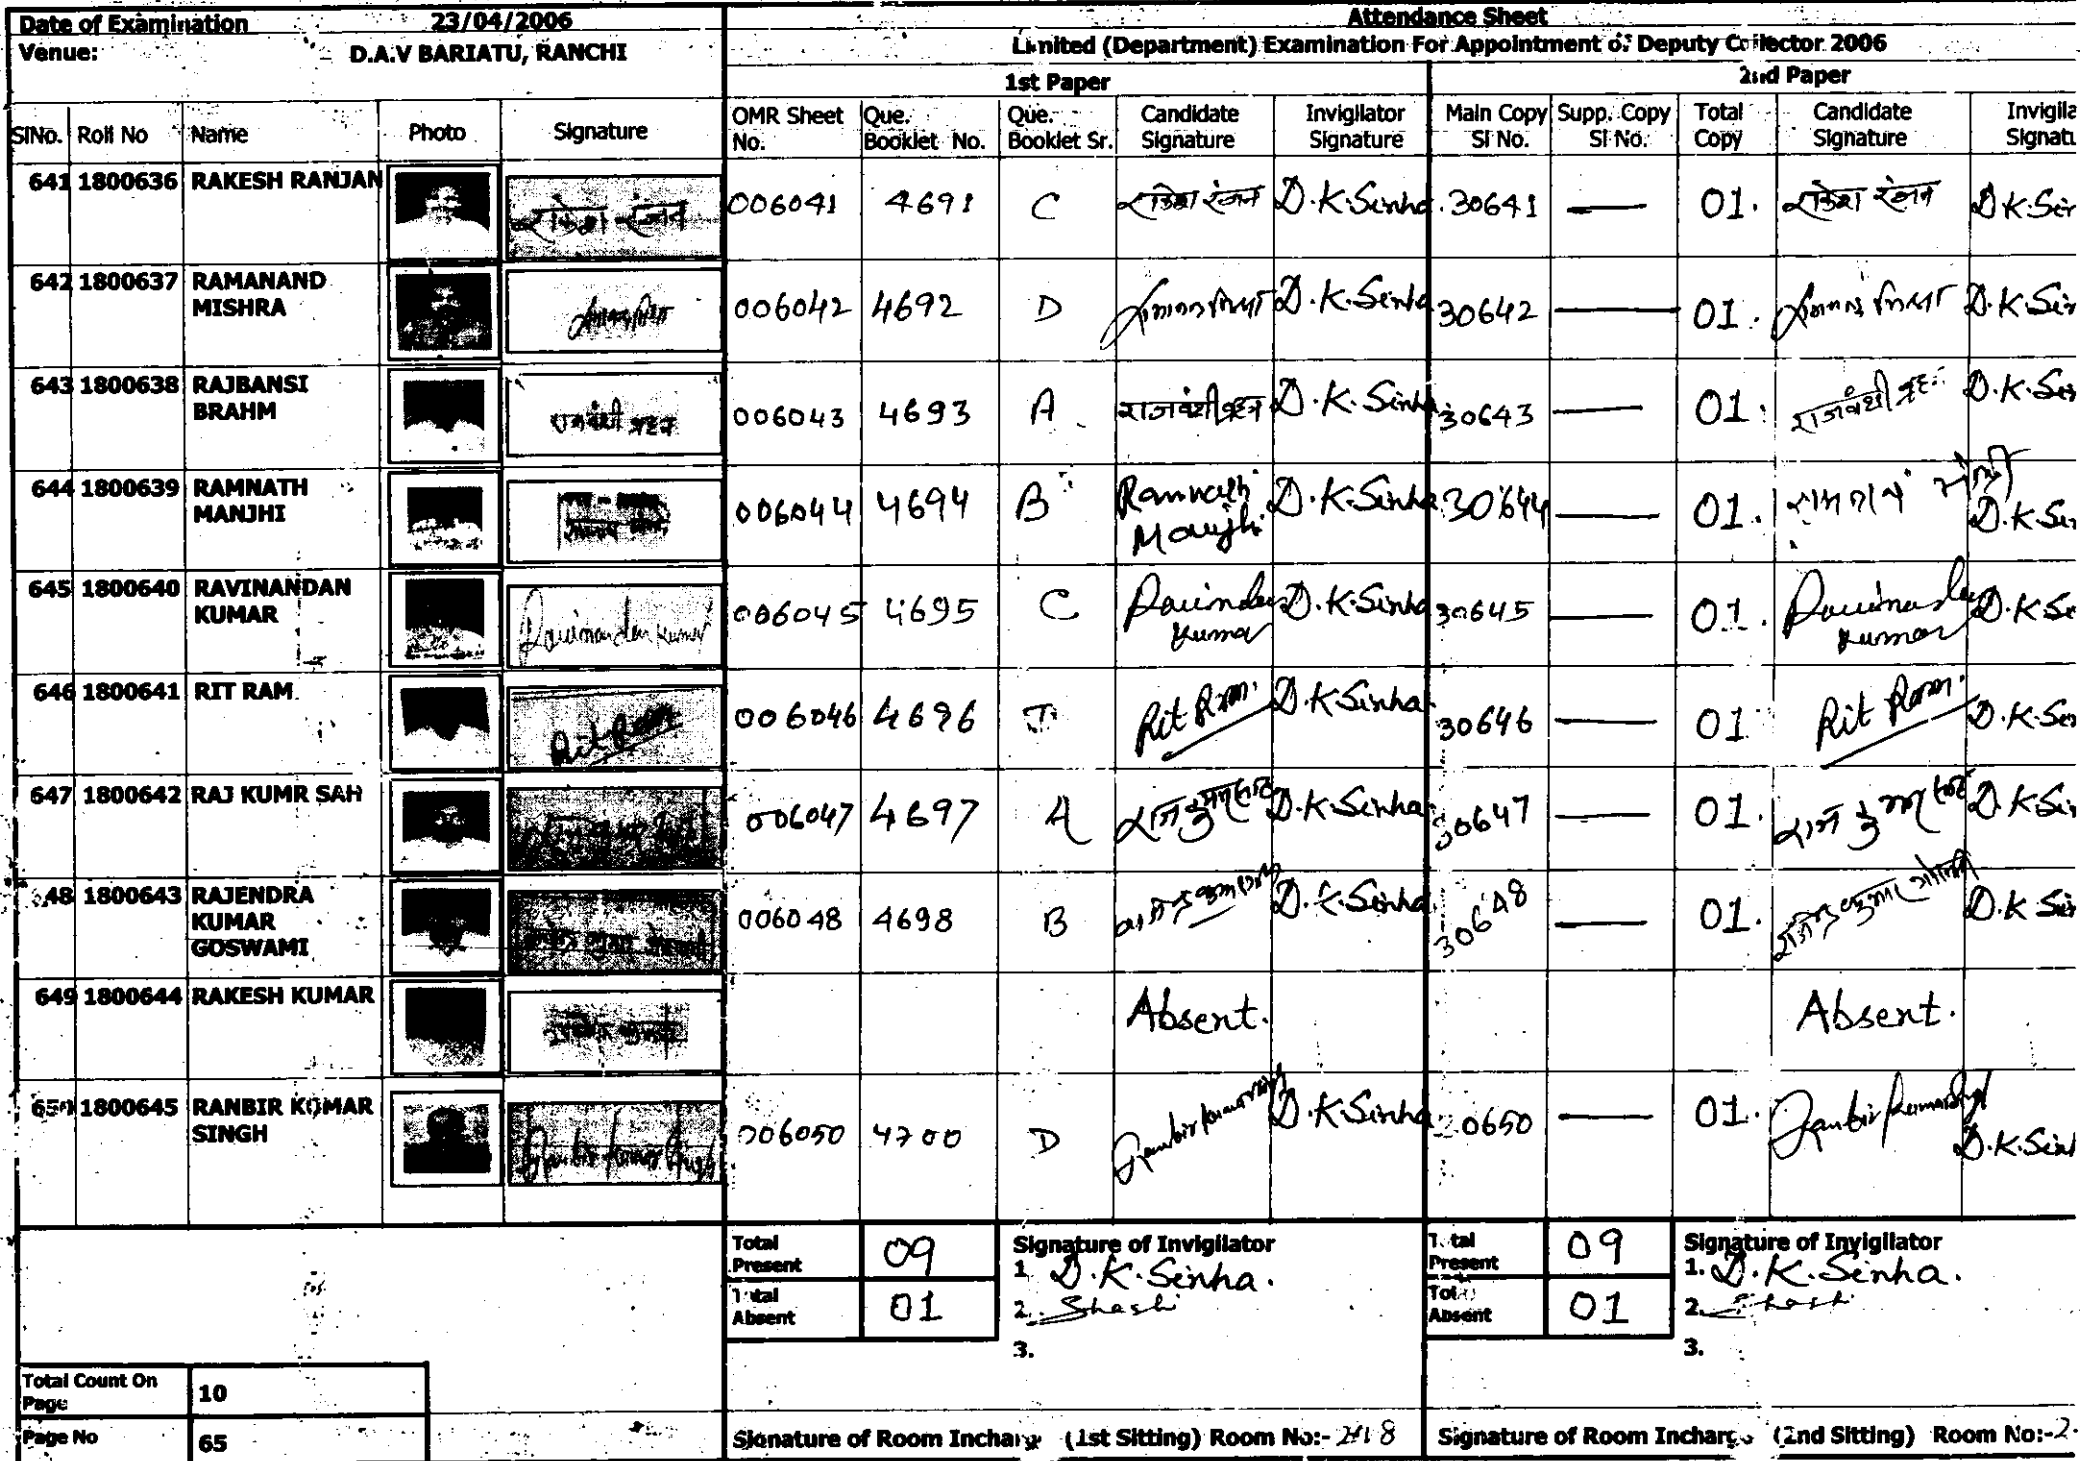 Date of Examination 23/04/2006 Attendance Sheet
Venue: D.A.V BARIATU, RANCHI Limited (Department) Examination For Appointment of Deputy Collector 2006
1st Paper 2nd Paper
SlNo. Roll No Name Photo Signature OMR Sheet No. Que. Booklet No. Que. Booklet Sr. Candidate Signature Invigilator Signature Main Copy Sl No. Supp. Copy Sl No. Total Copy Candidate Signature Invigila Signatu
641 1800636 RAKESH RANJAN राकेश रंजन 006041 4691 C राकेश रंजन D.K.Sinha 30641 — 01. राकेश रंजन D.K.Sin
642 1800637 RAMANAND MISHRA 006042 4692 D D.K.Sinha 30642 — 01. D.K.Sin
643 1800638 RAJBANSI BRAHM राजवंशी ब्रह्म 006043 4693 A राजवंशी ब्रह्म D.K.Sinha 30643 — 01. राजवंशी D.K.Sin
644 1800639 RAMNATH MANJHI 006044 4694 B Ramnath Manjhi D.K.Sinha 30644 — 01. रामनाथ मांझी D.K.Sin
645 1800640 RAVINANDAN KUMAR Ravinandan Kumar 006045 4695 C Ravinandan Kumar D.K.Sinha 30645 — 01. Ravinandan Kumar D.K.Si
646 1800641 RIT RAM Rit Ram 006046 4696 Rit Ram. D.K.Sinha 30646 — 01 Rit Ram. D.K.Sin
647 1800642 RAJ KUMR SAH 006047 4697 A D.K.Sinha 30647 — 01. D.K.Sin
48 1800643 RAJENDRA KUMAR GOSWAMI 006048 4698 B D.K.Sinha 30648 — 01. D.K Sin
649 1800644 RAKESH KUMAR Absent. Absent.
650 1800645 RANBIR KUMAR SINGH Ranbir Kumar Singh 006050 4700 D Ranbir Kumar Singh D.K.Sinha 0650 — 01. Ranbir Kumar Singh D.K.Sinh
Total Present 09 Signature of Invigilator Total Present 09 Signature of Invigilator
1. D.K.Sinha. 1. D.K.Sinha.
Total Absent 01 2. Shashi Total Absent 01 2. Shashi
3. 3.
Total Count On Page 10
Page No 65 Signature of Room Incharge (1st Sitting) Room No:- Signature of Room Incharge (2nd Sitting) Room No:-2